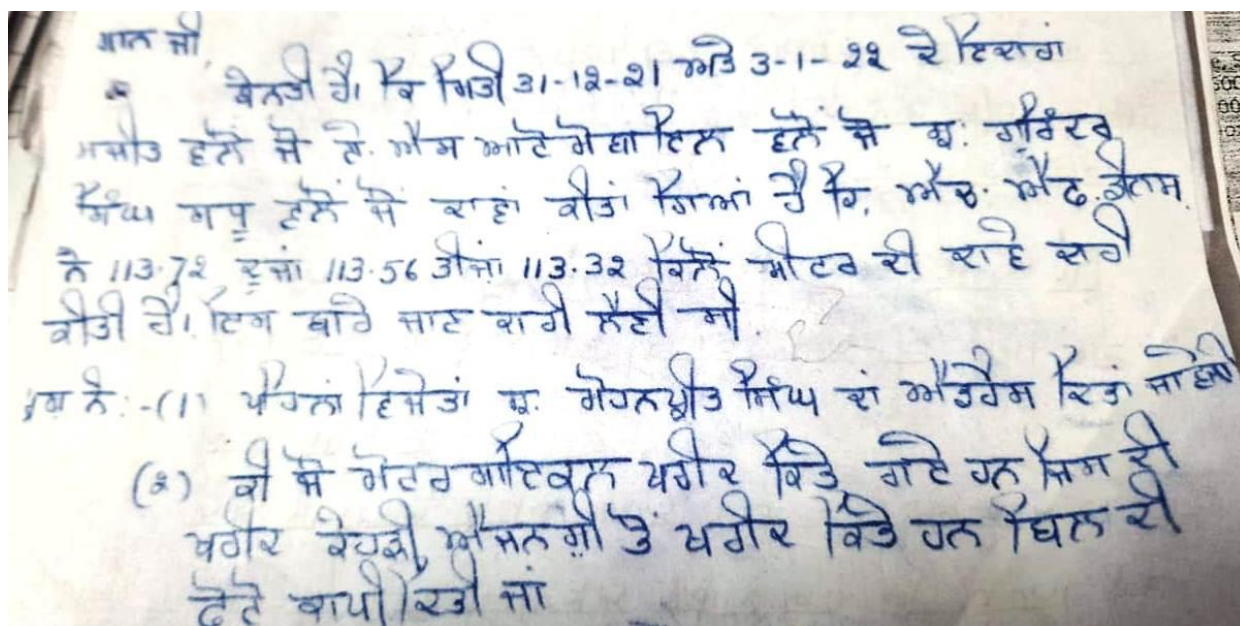 ਮਾਨ ਜੀ,
ਬੇਨਤੀ ਹੈ। ਕਿ ਮਿਤੀ 31-12-21 ਅਤੇ 3-1-22 ਦੇ
ਵਲੋਂ ਜੋ ਜੇ. ਐਮ ਆਟੋਮੋਬਾਇਲ ਵਲੋਂ ਜੋ ਸ੍ਰ: ਗੁਰਿੰਦਰ
ਸਿੰਘ ਵਲੋਂ ਜੋ ਦਾਵਾਂ ਕੀਤਾਂ ਗਿਆਂ ਹੈ ਕਿ, ਐਚ. ਐਫ. ਡੈਲਕਸ
ਨੇ 113.72 ਦੂਜਾਂ 113.56 ਤੀਜਾਂ 113.32 ਕਿਲੋਂ ਮੀਟਰ ਦੀ ਦਾਵੇ ਦਾਰੀ
ਕੀਤੀ ਹੈ। ਇਸ ਬਾਰੇ ਜਾਣ ਕਾਰੀ ਲੈਣੀ ਸੀ.
ਨੰ:-(1) ਪਹਿਲਾਂ ਵਿਜੇਤਾਂ ਸ੍ਰ: ਮੋਹਨਪ੍ਰੀਤ ਸਿੰਘ ਦਾਂ ਐਡਰੈਸ ਦਿਤਾਂ ਜਾਵੇਂ
(2) ਕੀ ਜੋ ਮੋਟਰ ਸਾਇਕਲ ਖਰੀਦ ਕਿਤੇ ਗਏ ਹਨ ਜਿਸ ਦੀ
ਖਰੀਦ ਕੇਹੜੀ ਐਜਨਸੀ ਤੋਂ ਖਰੀਦ ਕਿਤੇ ਹਨ ਬਿਲ ਦੀ
ਫੋਟੋ ਕਾਪੀ ਦਿਤੀ ਜਾਂ